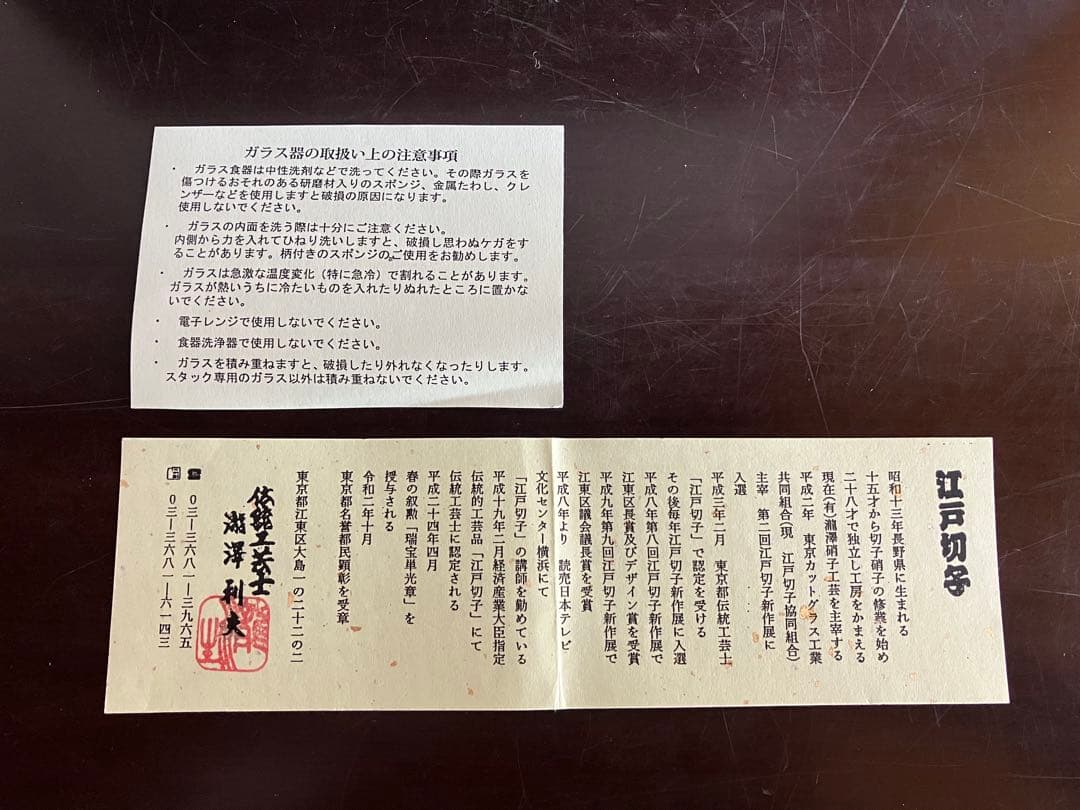 ガラス器の取扱い上の注意事項
・ ガラス食器は中性洗剤などで洗ってください。その際ガラスを
傷つけるおそれのある研磨材入りのスポンジ、金属たわし、クレ
ンザーなどを使用しますと破損の原因になります。
使用しないでください。
・ ガラスの内面を洗う際は十分にご注意ください。
内側から力を入れてひねり洗いしますと、破損し思わぬケガをす
ることがあります。柄付きのスポンジのご使用をお勧めします。
・ ガラスは急激な温度変化（特に急冷）で割れることがあります。
ガラスが熱いうちに冷たいものを入れたりぬれたところに置かな
いでください。
・ 電子レンジで使用しないでください。
・ 食器洗浄器で使用しないでください。
・ ガラスを積み重ねますと、破損したり外れなくなったりします。
スタック専用のガラス以外は積み重ねないでください。
江戸切子
昭和十三年長野県に生まれる
十五才から切子硝子の修業を始め
二十八才で独立し工房をかまえる
現在(有)瀧澤硝子工芸を主宰する
平成二年 東京カットグラス工業
共同組合(現 江戸切子協同組合)
主宰 第二回江戸切子新作展に
入選
平成三年二月 東京都伝統工芸士
「江戸切子」で認定を受ける
その後毎年江戸切子新作展に入選
平成八年第八回江戸切子新作展で
江東区長賞及びデザイン賞を受賞
平成九年第九回江戸切子新作展で
江東区議会議長賞を受賞
平成八年より 読売日本テレビ
文化センター横浜にて
「江戸切子」の講師を勤めている
平成十九年二月経済産業大臣指定
伝統的工芸品「江戸切子」にて
伝統工芸士に認定される
平成二十四年四月
春の叙勲「瑞宝単光章」を
授与される
令和二年十月
東京都名誉都民顕彰を受章
東京都江東区大島一の二十二の二
伝統工芸士
瀧澤利夫
☎ 〇三―三六八一―三九六五
〇三―三六八一―六一四三